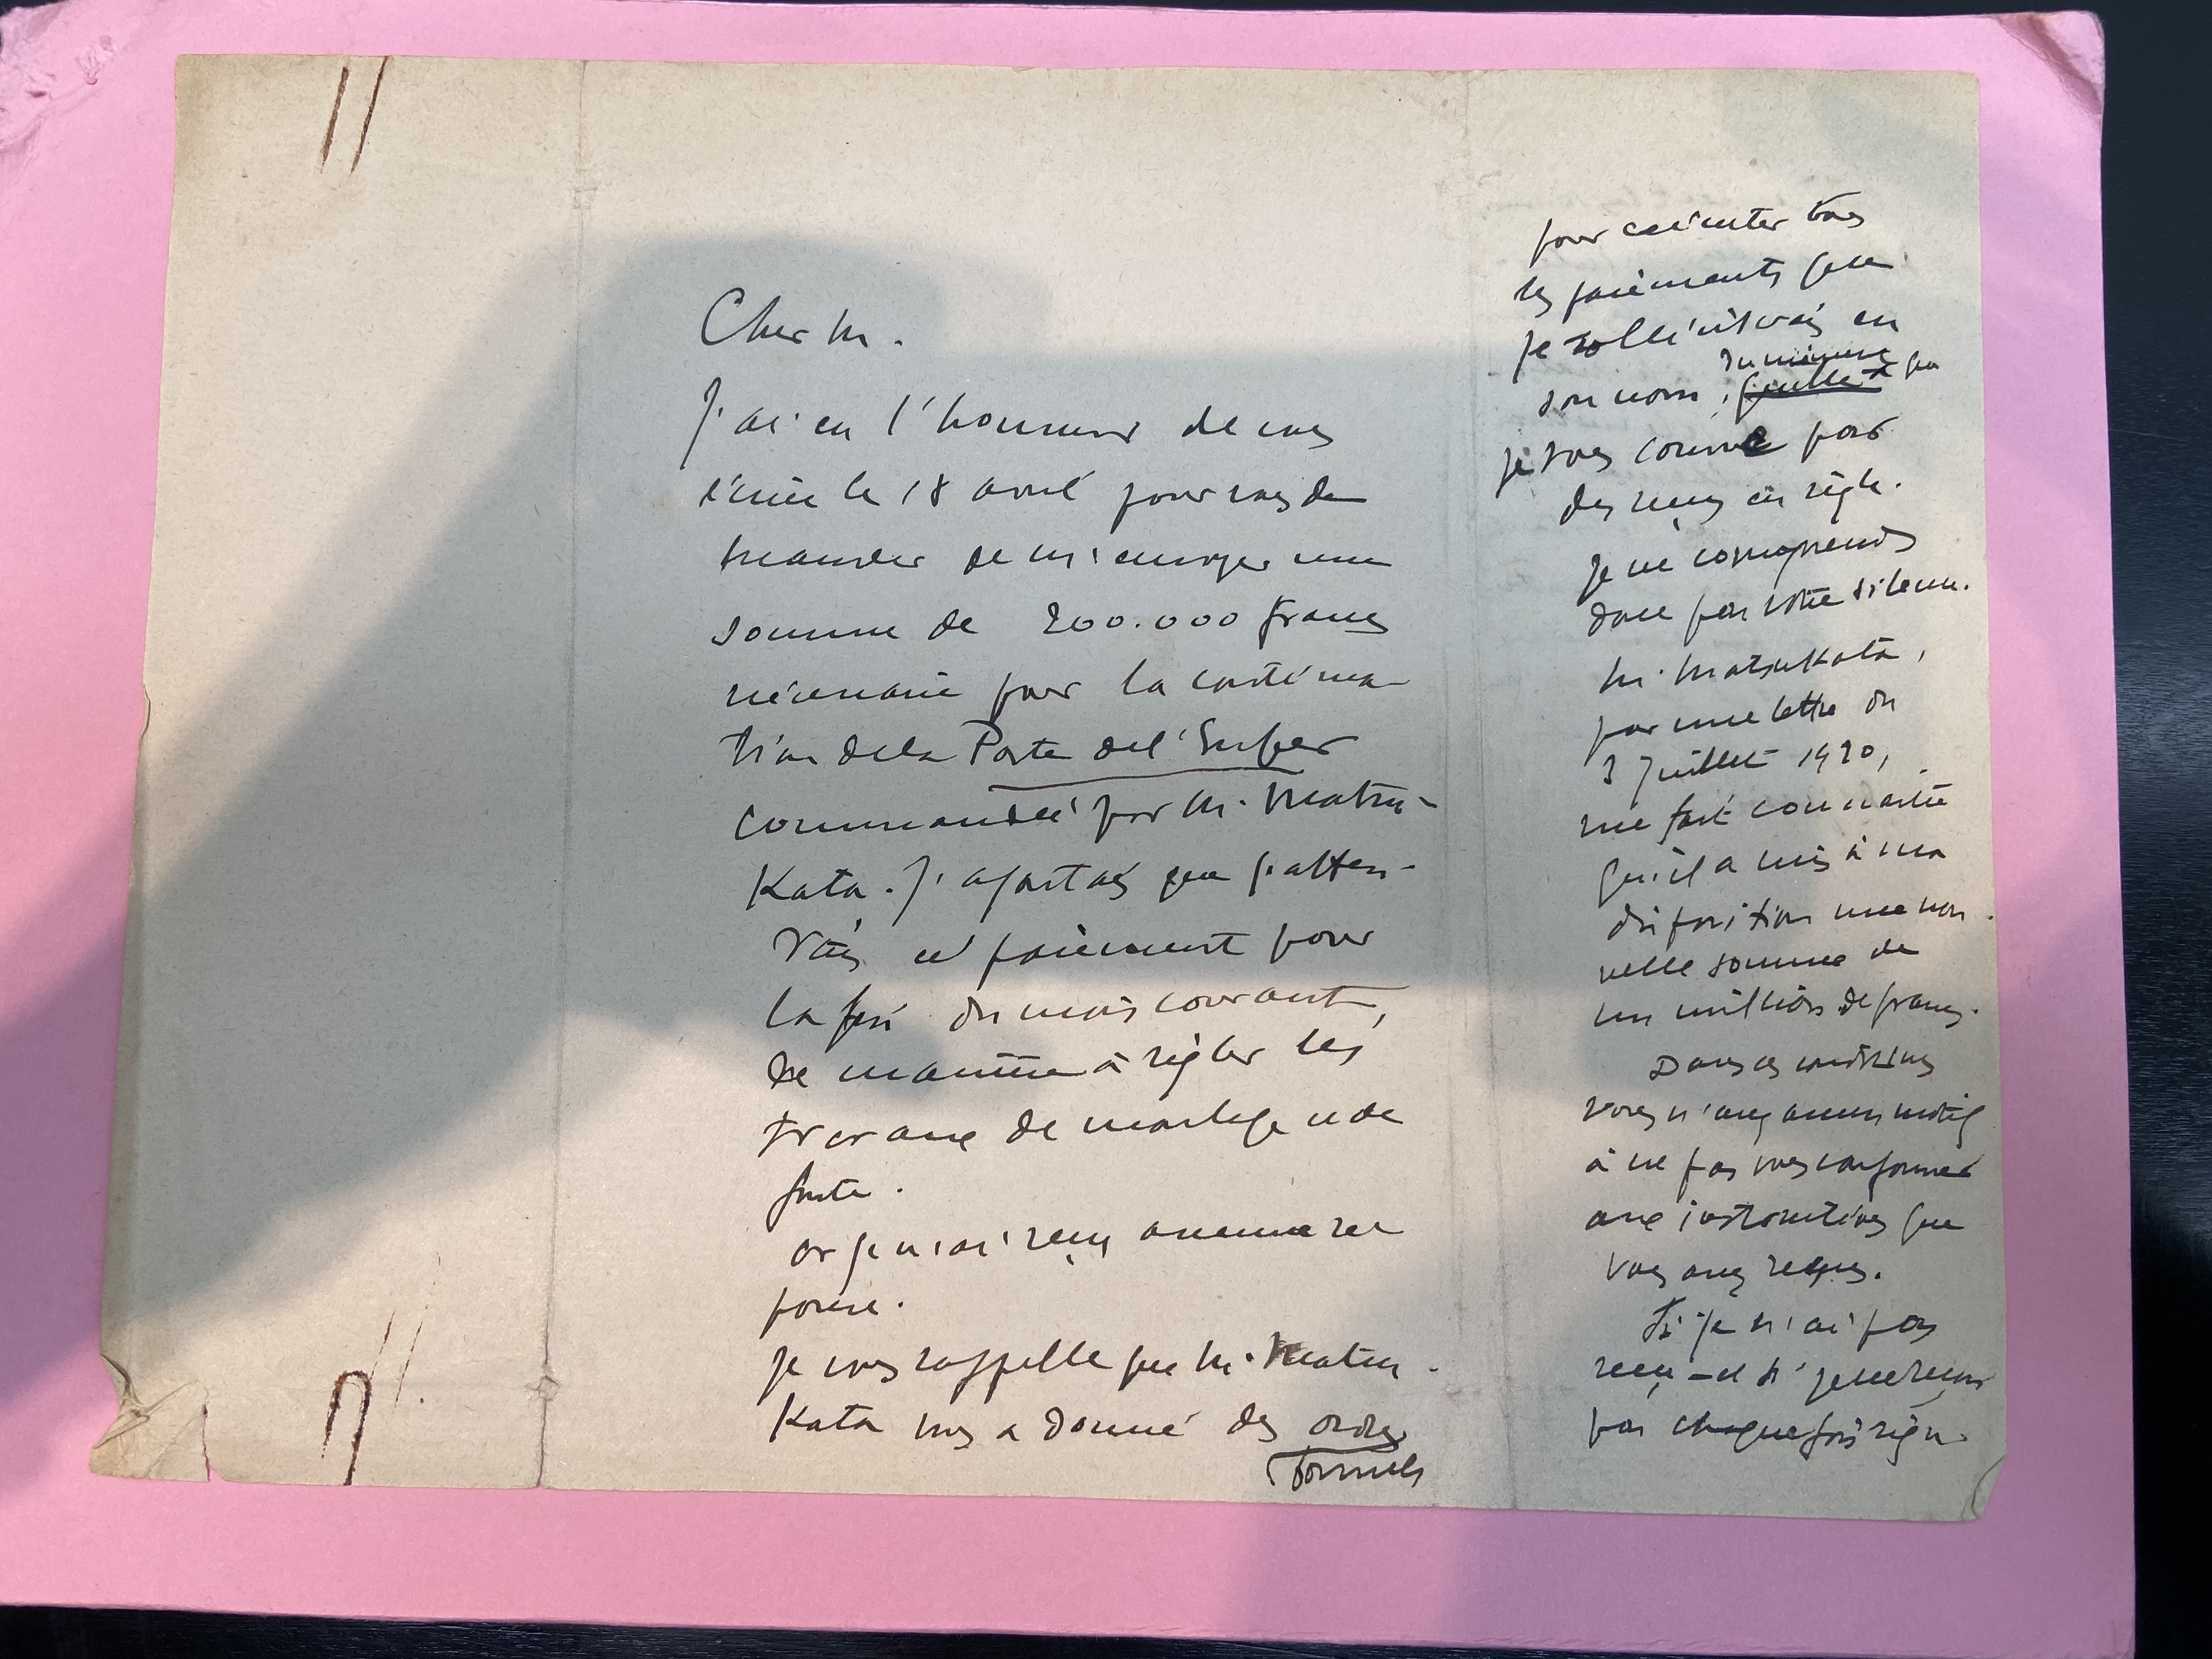 Cher M.
J'ai eu l'honneur de vous
écrire le 18 avril pour vous de
mander de m'envoyer une
somme de 200.000 francs
nécessaire pour la contin
tion de la Porte de l'Enfer
commandée par M. Matsu-
Kata. J'ajoutais que j'atten-
dais ce paiement pour
la fin du mois courant,
de manière à régler les
travaux de moulage et de
fonte.
or je n'ai reçu aucune ré
ponse.
je vous rappelle que M. Matsu-
Kata vous a donné des ordres
formels
pour exécuter tous
les paiements que
je solliciterais en
son nom, du moment que
je vous couvre par
des reçus en règle.
je ne comprends
donc pas votre silence.
M. Matsukata,
par une lettre du
3 juillet 1920,
me fait connaître
qu'il a mis à ma
disposition une nou-
velle somme de
un million de francs.
Dans ces conditions
vous n'avez aucun motif
à ne pas vous conformer
aux instructions que
vous avez reçues.
Si je n'ai pas
reçu - et si je ne reçois
pas chaque fois